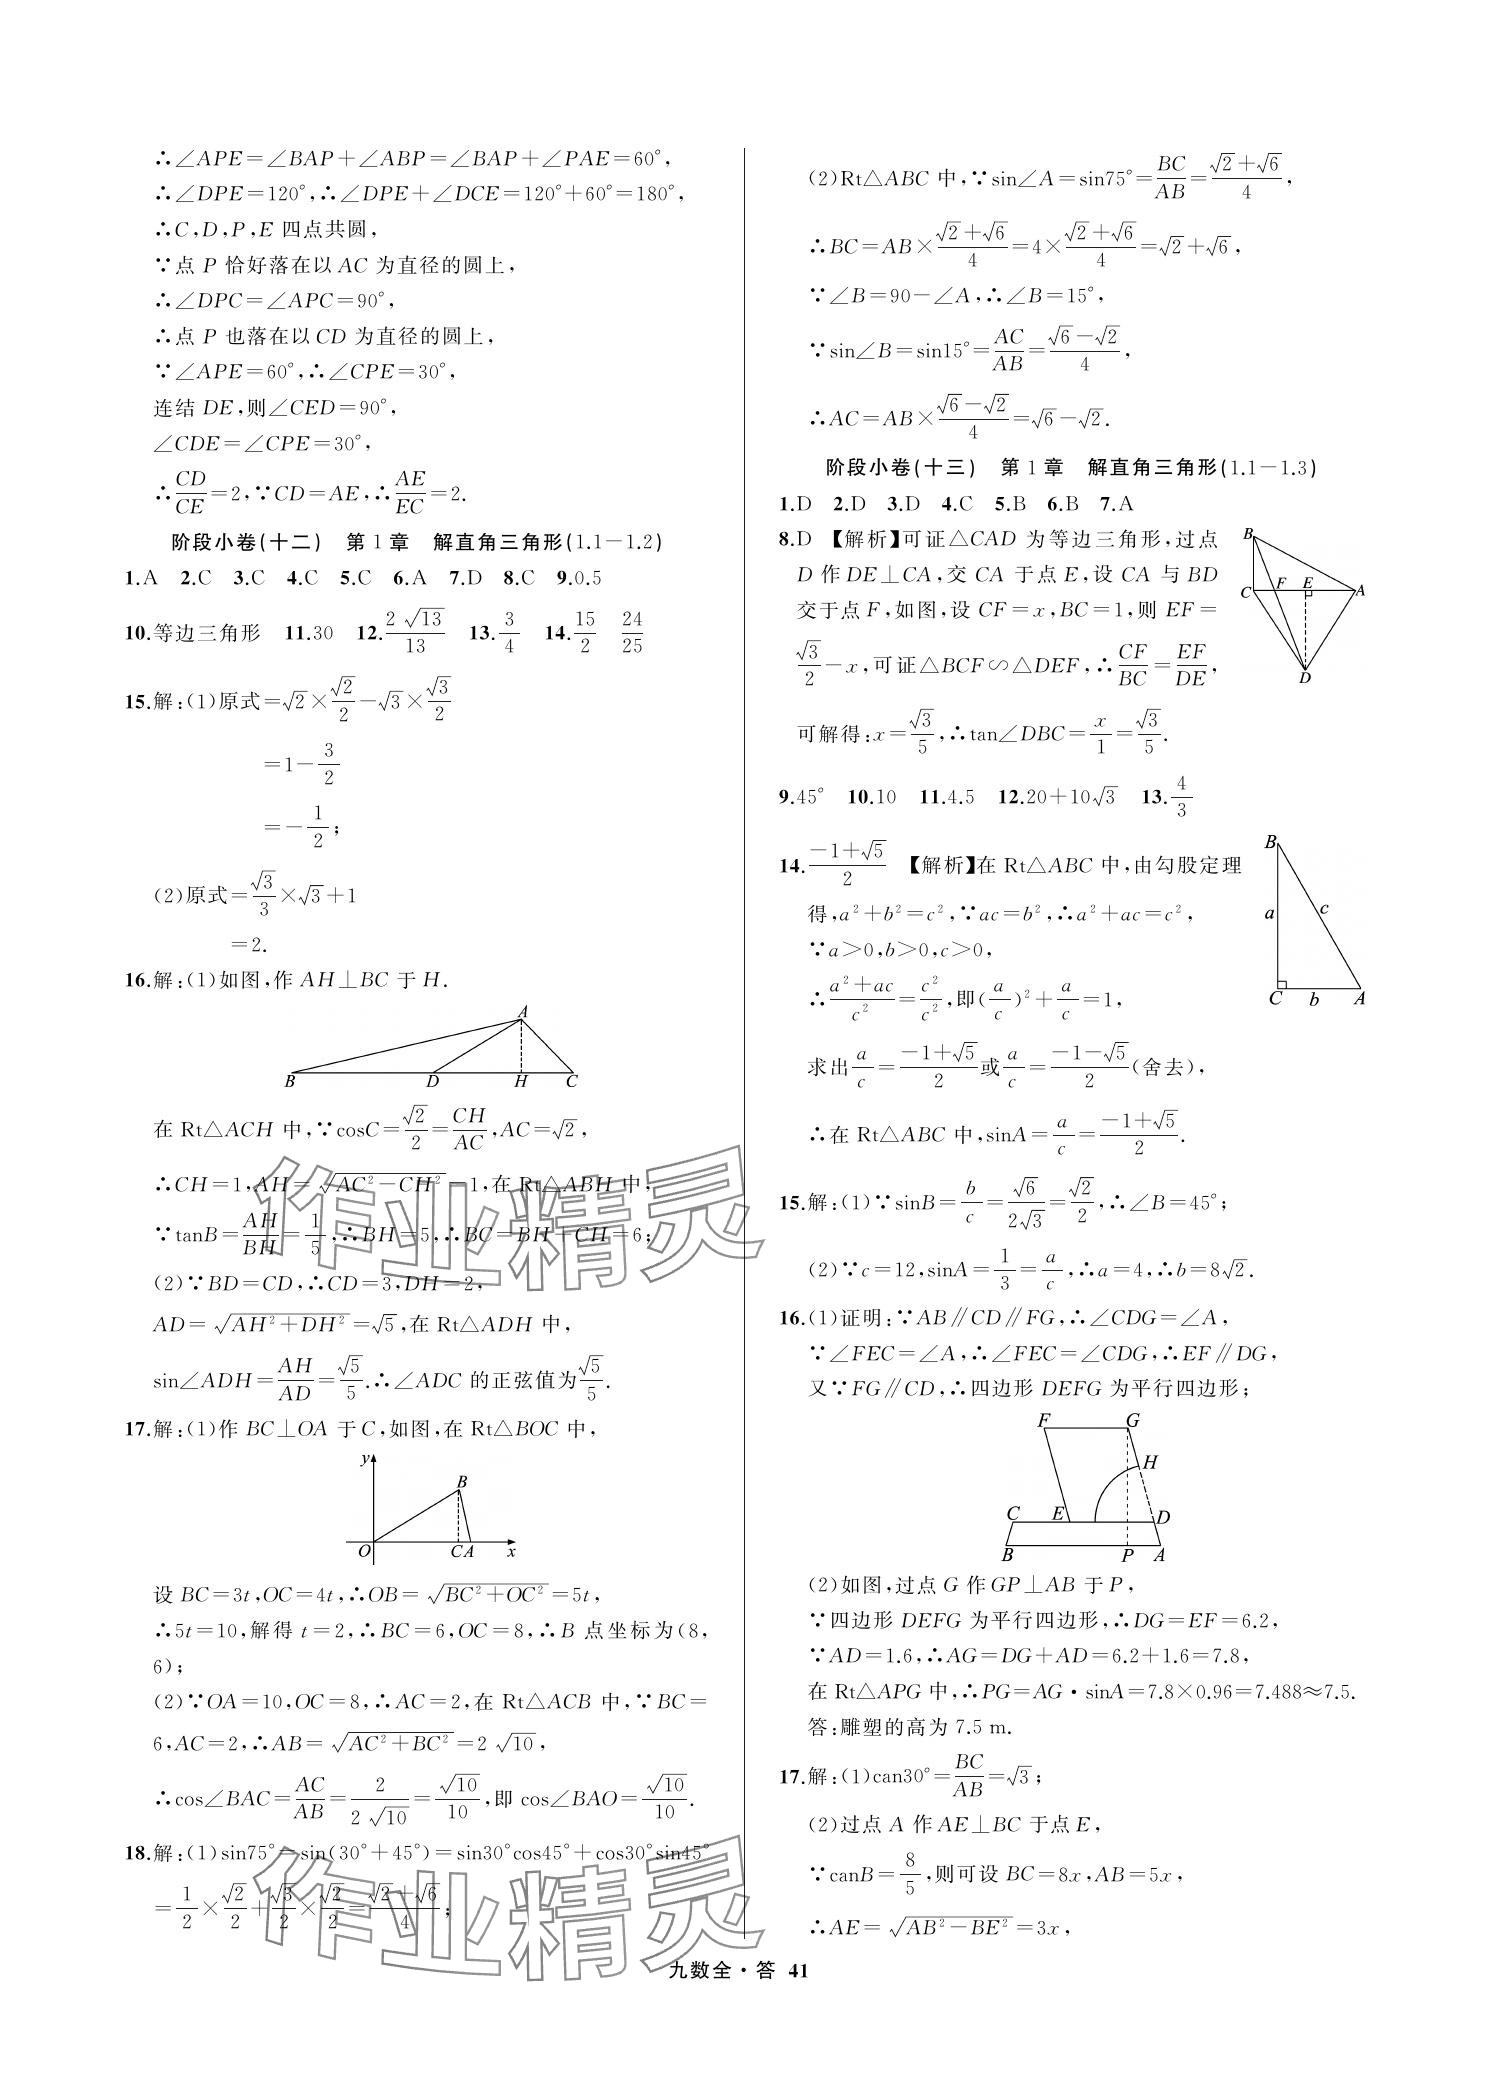 ∴∠APE=∠BAP+∠ABP=∠BAP+∠PAE=60°,
∴∠DPE=120°,∴∠DPE+∠DCE=120°+60°=180°,
∴C,D,P,E 四点共圆,
∵点 P 恰好落在以 AC 为直径的圆上,
∴∠DPC=∠APC=90°,
∴点 P 也落在以 CD 为直径的圆上,
∵∠APE=60°,∴∠CPE=30°,
连结 DE,则∠CED=90°,
∠CDE=∠CPE=30°,
∴CD/CE=2,∵CD=AE,∴AE/EC=2.
阶段小卷(十二) 第1章 解直角三角形(1.1-1.2)
1.A 2.C 3.C 4.C 5.C 6.A 7.D 8.C 9.0.5
10.等边三角形 11.30 12.2√13/13 13.3/4 14.15/2 24/25
15.解:(1)原式=√2×√2/2-√3×√3/2
=1-3/2
=-1/2;
(2)原式=√3/3×√3+1
=2.
16.解:(1)如图,作 AH⊥BC 于 H.
A
B D H C
在 Rt△ACH 中,∵cosC=√2/2=CH/AC,AC=√2,
∴CH=1,AH=√(AC²-CH²)=1,在 Rt△ABH 中,
∵tanB=AH/BH=1/5,∴BH=5,∴BC=BH+CH=6;
(2)∵BD=CD,∴CD=3,DH=2,
AD=√(AH²+DH²)=√5,在 Rt△ADH 中,
sin∠ADH=AH/AD=√5/5.∴∠ADC 的正弦值为√5/5.
17.解:(1)作 BC⊥OA 于 C,如图,在 Rt△BOC 中,
y
B
O C A x
设 BC=3t,OC=4t,∴OB=√(BC²+OC²)=5t,
∴5t=10,解得 t=2,∴BC=6,OC=8,∴B 点坐标为(8,
6);
(2)∵OA=10,OC=8,∴AC=2,在 Rt△ACB 中,∵BC=
6,AC=2,∴AB=√(AC²+BC²)=2√10,
∴cos∠BAC=AC/AB=2/2√10=√10/10,即 cos∠BAO=√10/10.
18.解:(1)sin75°=sin(30°+45°)=sin30°cos45°+cos30°sin45°
=1/2×√2/2+√3/2×√2/2=(√2+√6)/4;
(2)Rt△ABC 中,∵sin∠A=sin75°=BC/AB=(√2+√6)/4,
∴BC=AB×(√2+√6)/4=4×(√2+√6)/4=√2+√6,
∵∠B=90-∠A,∴∠B=15°,
∵sin∠B=sin15°=AC/AB=(√6-√2)/4,
∴AC=AB×(√6-√2)/4=√6-√2.
阶段小卷(十三) 第1章 解直角三角形(1.1-1.3)
1.D 2.D 3.D 4.C 5.B 6.B 7.A
8.D 【解析】可证△CAD 为等边三角形,过点
D 作 DE⊥CA,交 CA 于点 E,设 CA 与 BD
交于点 F,如图,设 CF=x,BC=1,则 EF=
√3/2-x,可证△BCF∽△DEF,∴CF/BC=EF/DE,
可解得:x=√3/5,∴tan∠DBC=x/1=√3/5.
B
C F E A
D
9.45° 10.10 11.4.5 12.20+10√3 13.4/3
14.(-1+√5)/2 【解析】在 Rt△ABC 中,由勾股定理
得,a²+b²=c²,∵ac=b²,∴a²+ac=c²,
∵a>0,b>0,c>0,
∴(a²+ac)/c²=c²/c²,即(a/c)²+a/c=1,
求出a/c=(-1+√5)/2或a/c=(-1-√5)/2(舍去),
∴在 Rt△ABC 中,sinA=a/c=(-1+√5)/2.
B
a c
C b A
15.解:(1)∵sinB=b/c=√6/2√3=√2/2,∴∠B=45°;
(2)∵c=12,sinA=1/3=a/c,∴a=4,∴b=8√2.
16.(1)证明:∵AB∥CD∥FG,∴∠CDG=∠A,
∵∠FEC=∠A,∴∠FEC=∠CDG,∴EF∥DG,
又∵FG∥CD,∴四边形 DEFG 为平行四边形;
F G
H
C E D
B P A
(2)如图,过点 G 作 GP⊥AB 于 P,
∵四边形 DEFG 为平行四边形,∴DG=EF=6.2,
∵AD=1.6,∴AG=DG+AD=6.2+1.6=7.8,
在 Rt△APG 中,∴PG=AG·sinA=7.8×0.96=7.488≈7.5.
答:雕塑的高为 7.5 m.
17.解:(1)can30°=BC/AB=√3;
(2)过点 A 作 AE⊥BC 于点 E,
∵canB=8/5,则可设 BC=8x,AB=5x,
∴AE=√(AB²-BE²)=3x,
九数全·答 41
作业精灵
作业精灵